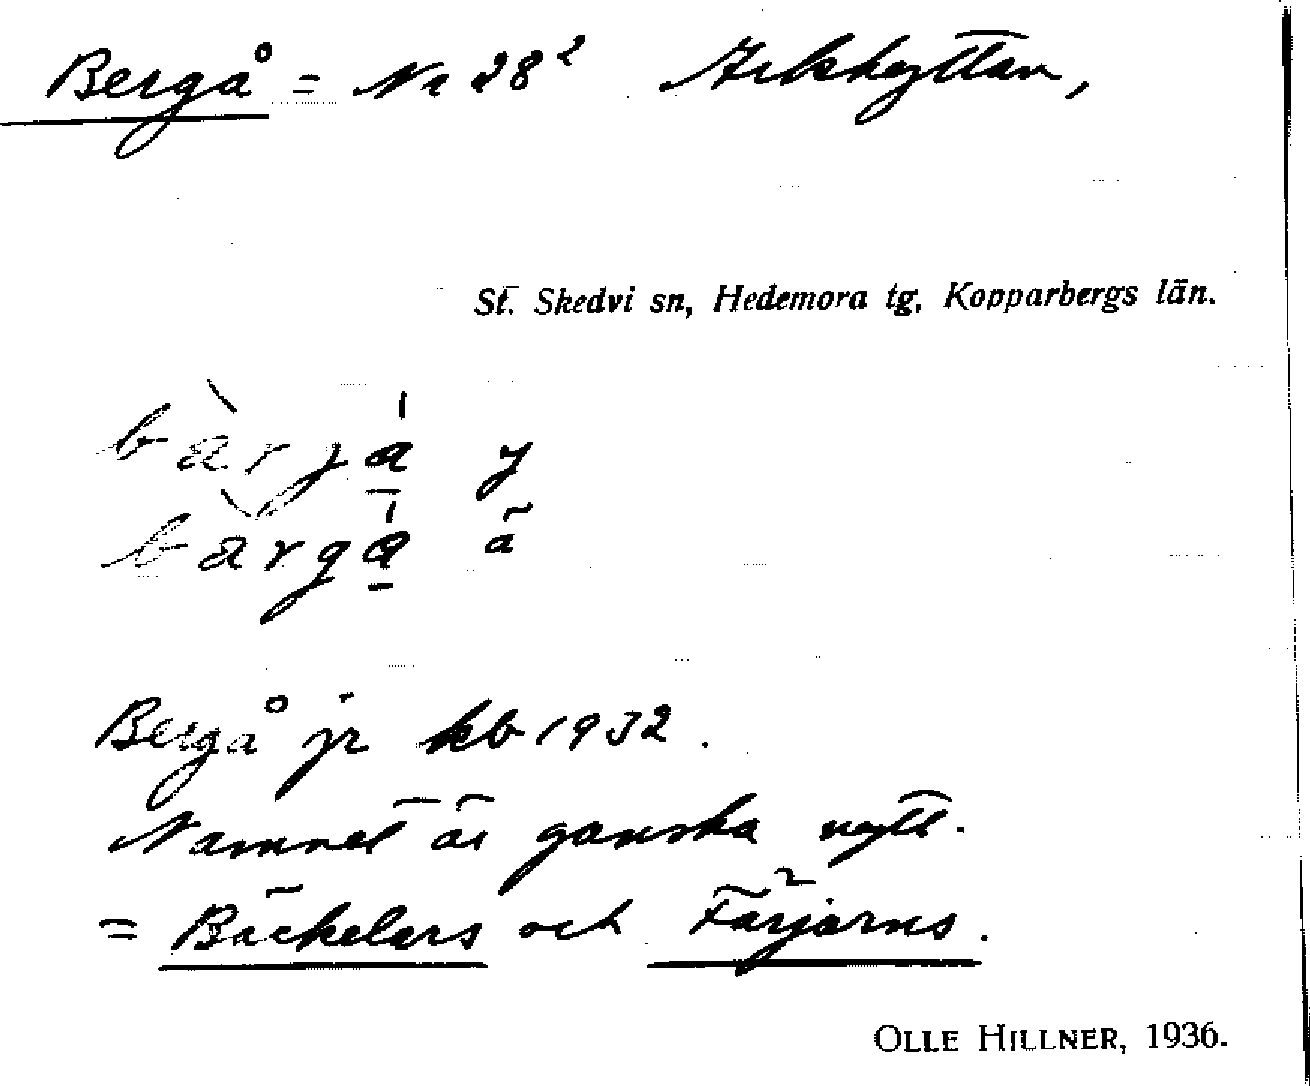 Bergå = Nr 28² Arkhyttan,
St. Skedvi sn, Hedemora tg, Kopparbergs län.
Bergå jr kb 1932.
Namnet är ganska nytt.
= Bäckelars och Färjarns.
OLLE HILLNER, 1936.